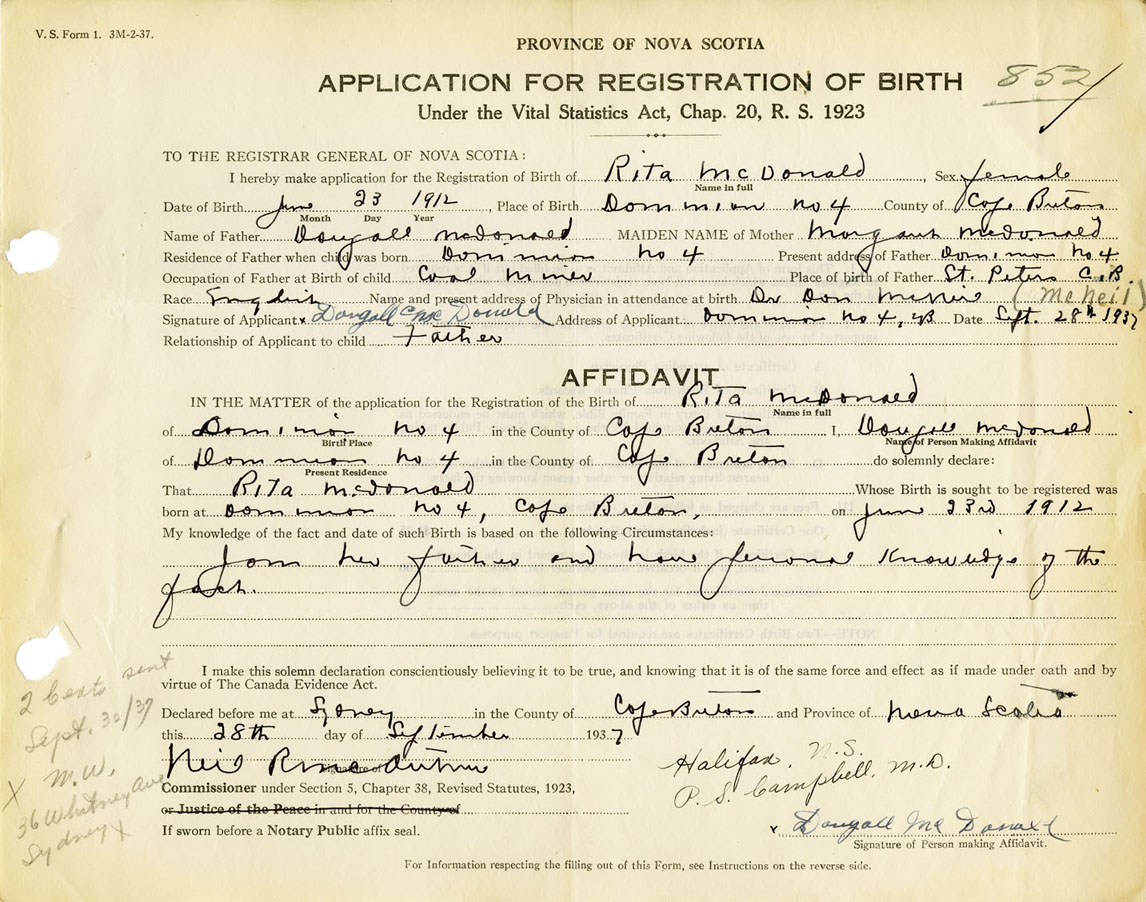 V. S. Form 1. 3M-2-37.
PROVINCE OF NOVA SCOTIA
APPLICATION FOR REGISTRATION OF BIRTH
852
Under the Vital Statistics Act, Chap. 20, R. S. 1923
TO THE REGISTRAR GENERAL OF NOVA SCOTIA:
I hereby make application for the Registration of Birth of Rita McDonald, Sex female
Name in full
Date of Birth June 23 1912, Place of Birth Dominion No 4 County of Cape Breton
Month Day Year
Name of Father Dougall McDonald MAIDEN NAME of Mother Margaret McDonald
Residence of Father when child was born Dominion No 4 Present address of Father Dominion No 4
Occupation of Father at Birth of child Coal Miner Place of birth of Father St. Peters C.B.
Race English Name and present address of Physician in attendance at birth Dr Dan McNeil (McNeil)
Signature of Applicant x Dougall McDonald Address of Applicant Dominion No 4, CB Date Sept. 28th 1937
Relationship of Applicant to child Father
AFFIDAVIT
IN THE MATTER of the application for the Registration of the Birth of Rita McDonald
Name in full
of Dominion No 4 in the County of Cape Breton I, Dougall McDonald
Birth Place Name of Person Making Affidavit
of Dominion No 4 in the County of Cape Breton do solemnly declare:
Present Residence
That Rita McDonald Whose Birth is sought to be registered was
born at Dominion No 4, Cape Breton, on June 23rd 1912
My knowledge of the fact and date of such Birth is based on the following Circumstances:
I am her father and have personal knowledge of the
fact.
I make this solemn declaration conscientiously believing it to be true, and knowing that it is of the same force and effect as if made under oath and by
virtue of The Canada Evidence Act.
Declared before me at Sydney in the County of Cape Breton and Province of Nova Scotia
this 28th day of September 1937
Neil R McArthur
Signature of
Commissioner under Section 5, Chapter 38, Revised Statutes, 1923,
or Justice of the Peace in and for the County of
If sworn before a Notary Public affix seal.
Halifax, N.S.
P. S. Campbell, M.D.
x Dougall McDonald
Signature of Person making Affidavit.
For Information respecting the filling out of this Form, see Instructions on the reverse side.
2 Certs sent
Sept. 30/37
X M.W.
36 Whitney Ave
Sydney X